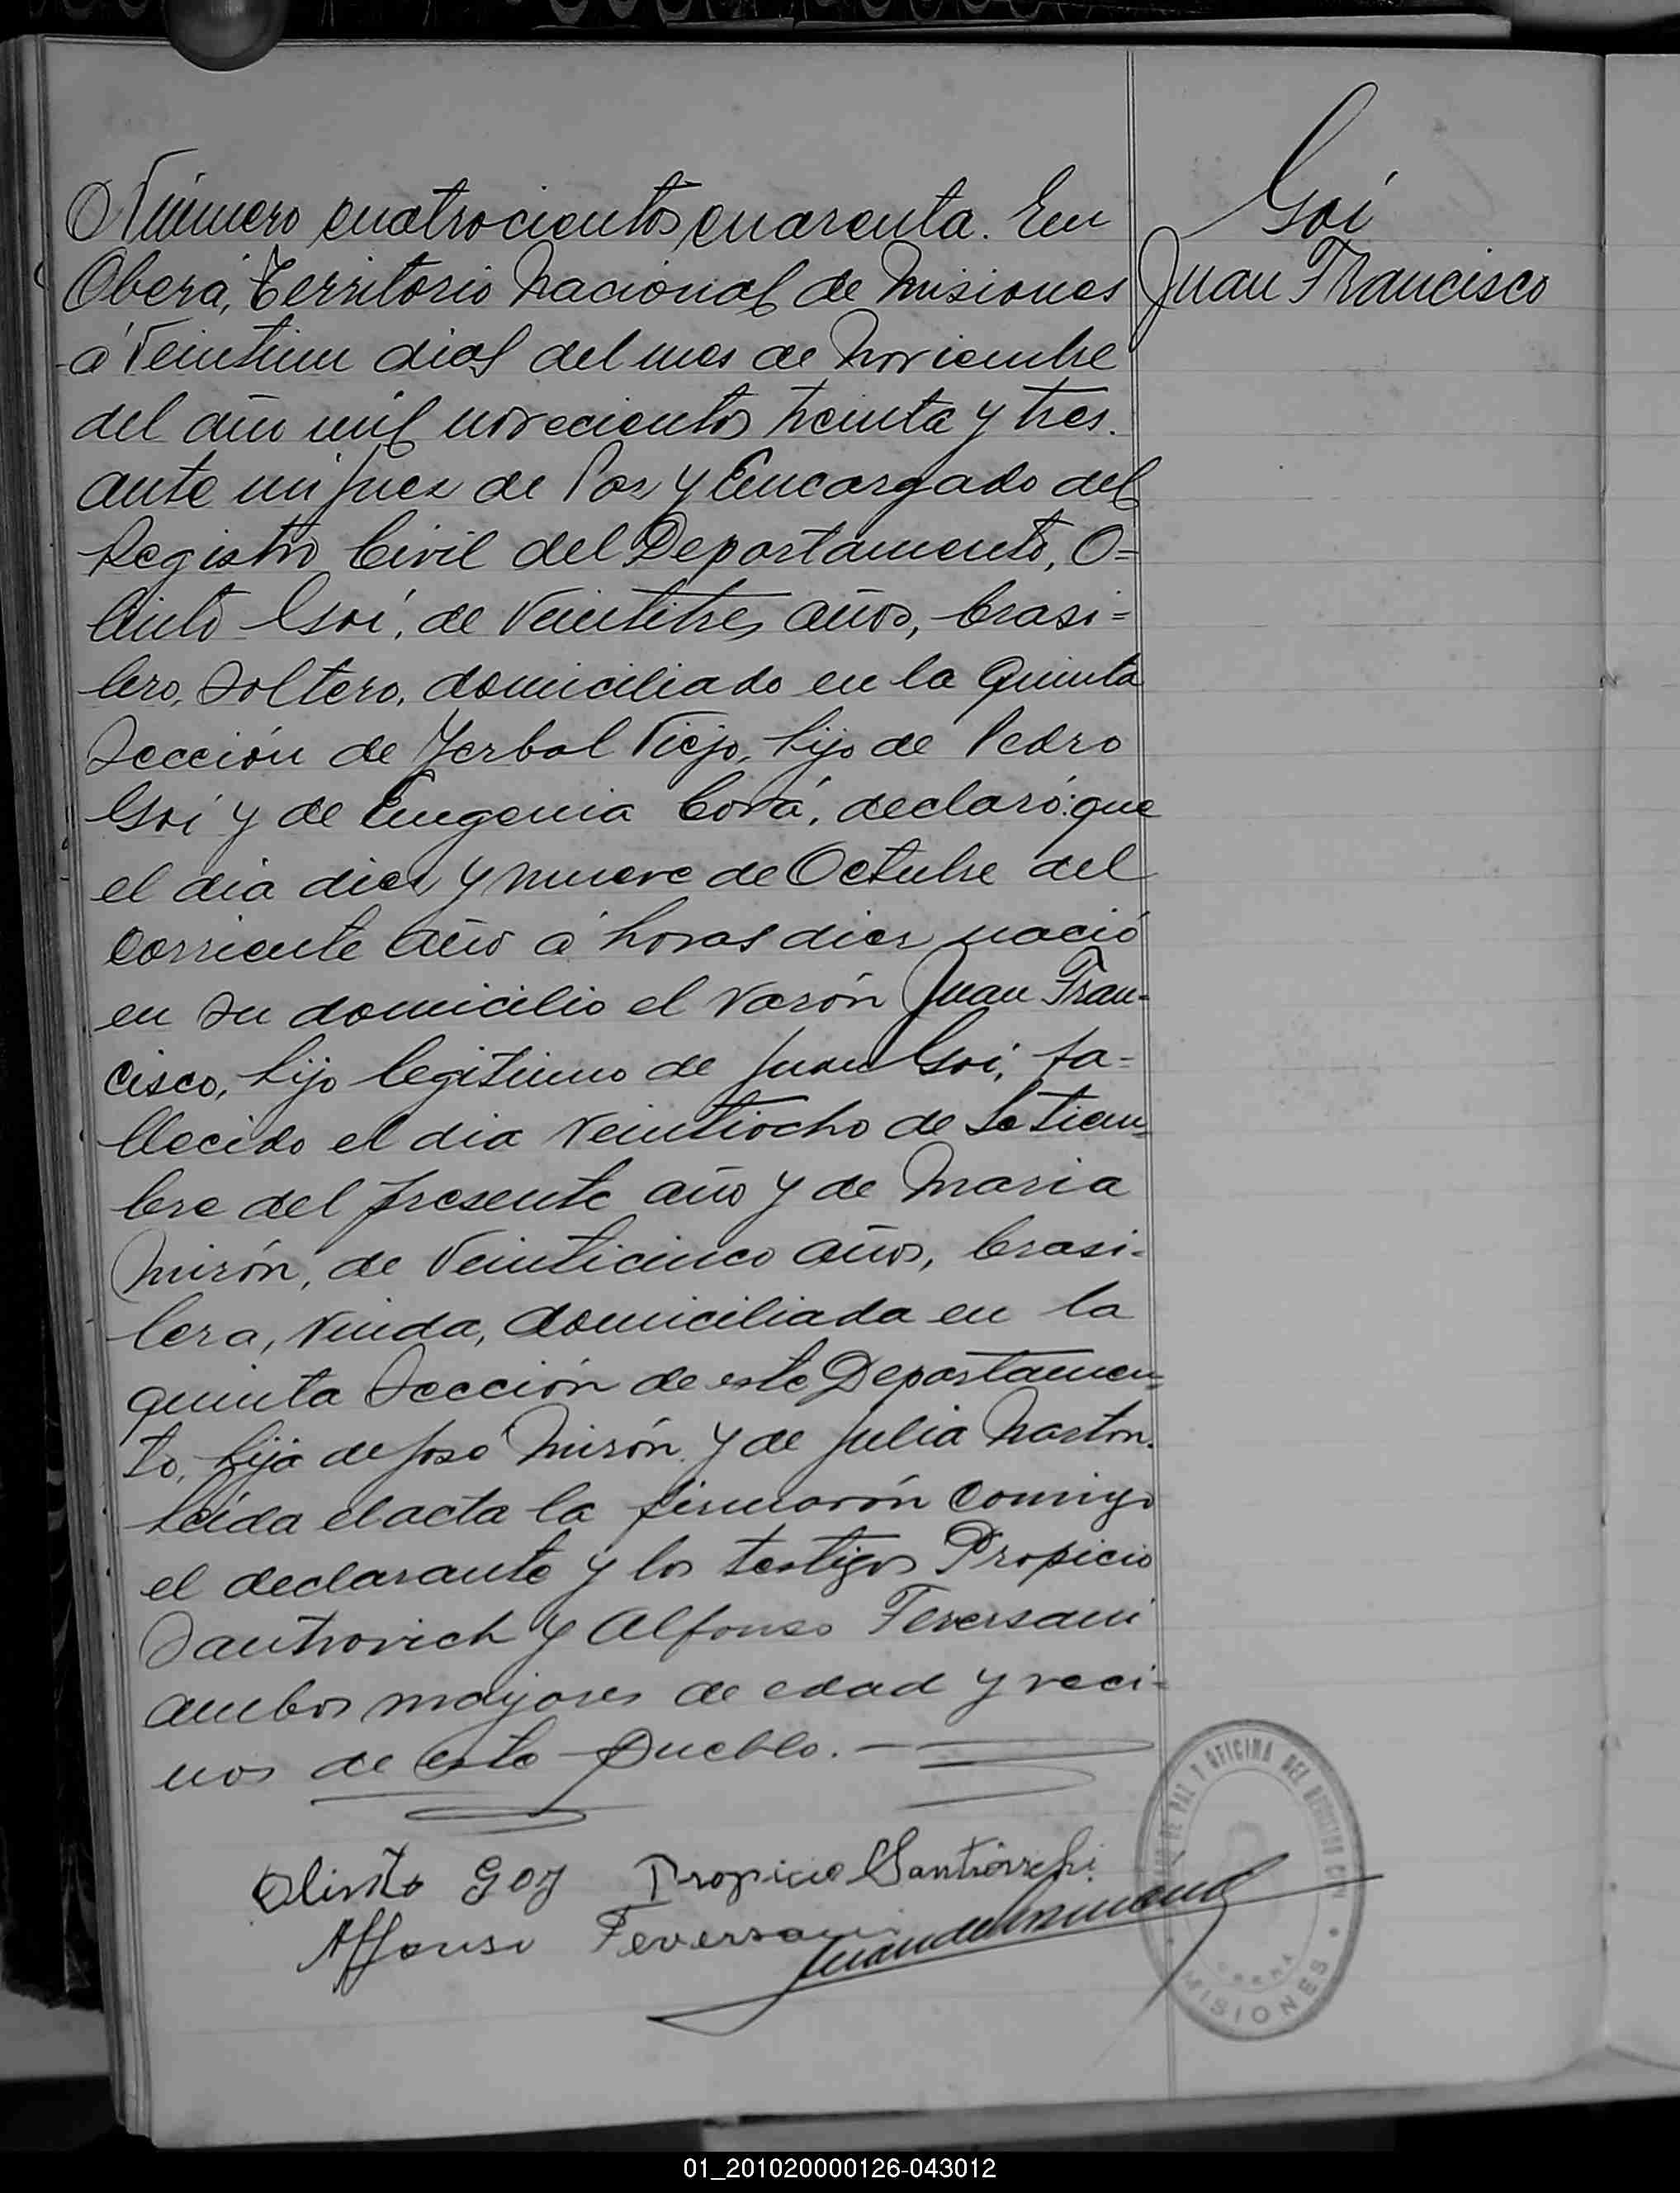 Goi
Juan Francisco
Número cuatrocientos cuarenta. En
Oberá, Territorio Nacional de Misiones
á Veintiun dias del mes de Noviembre
del año mil novecientos treinta y tres.
ante mi Juez de Paz y Encargado del
Registro Civil del Departamento, O=
linto Goi, de Veintitres años, brasi=
lero, soltero, domiciliado en la Quinta
Sección de Yerbal Viejo, hijo de Pedro
Goi y de Eugenia Corá, declaró: que
el dia diez y nueve de Octubre del
corriente año á horas diez nació
en su domicilio el varón Juan Fran=
cisco, hijo legitimo de Juan Goi, fa=
llecido el dia veintiocho de Setiem=
bre del presente año y de Maria
Mirón, de Veinticinco años, brasi=
lera, viuda, domiciliada en la
quinta Sección de este Departamen=
to, hija de José Mirón y de Julia Marton.
Leída el acta la firmarón conmigo
el declarante y los testigos Propicio
Santrovich y Alfonso Feversani
ambos mayores de edad y veci=
nos de este Pueblo.
Olinto Goy Propicio
Affonso Feversani
MISIONES
01_201020000126-043012